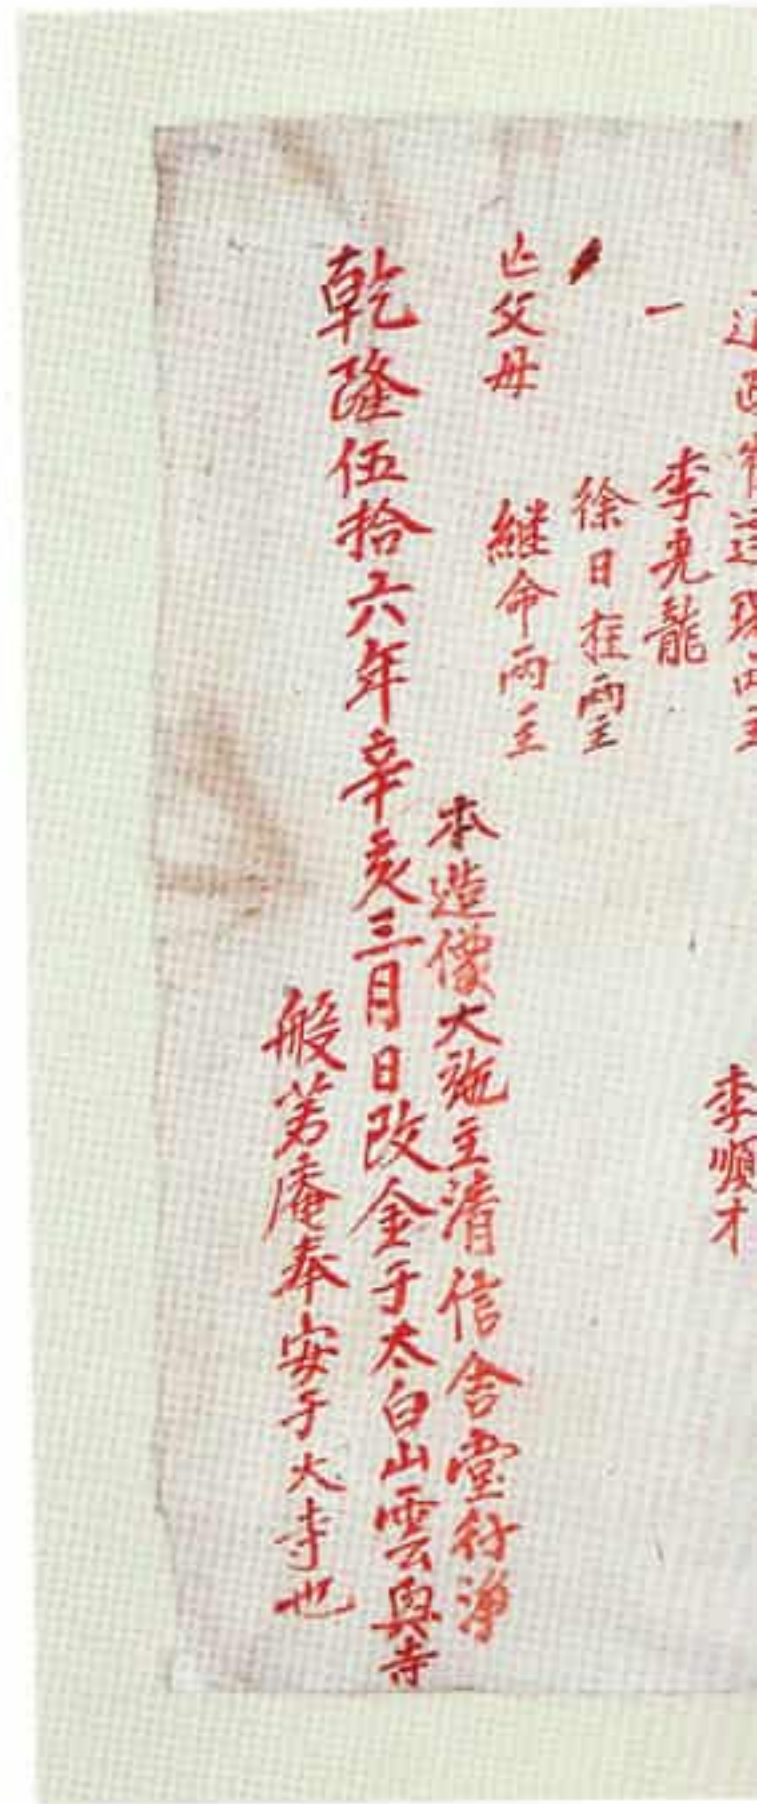 李順才
李堯龍
徐日柱兩主
亡父母 継命兩主
本造像大施主清信舍堂行淨
乾隆伍拾六年辛亥三月日改金于太白山雲興寺
般若庵奉安于大寺也